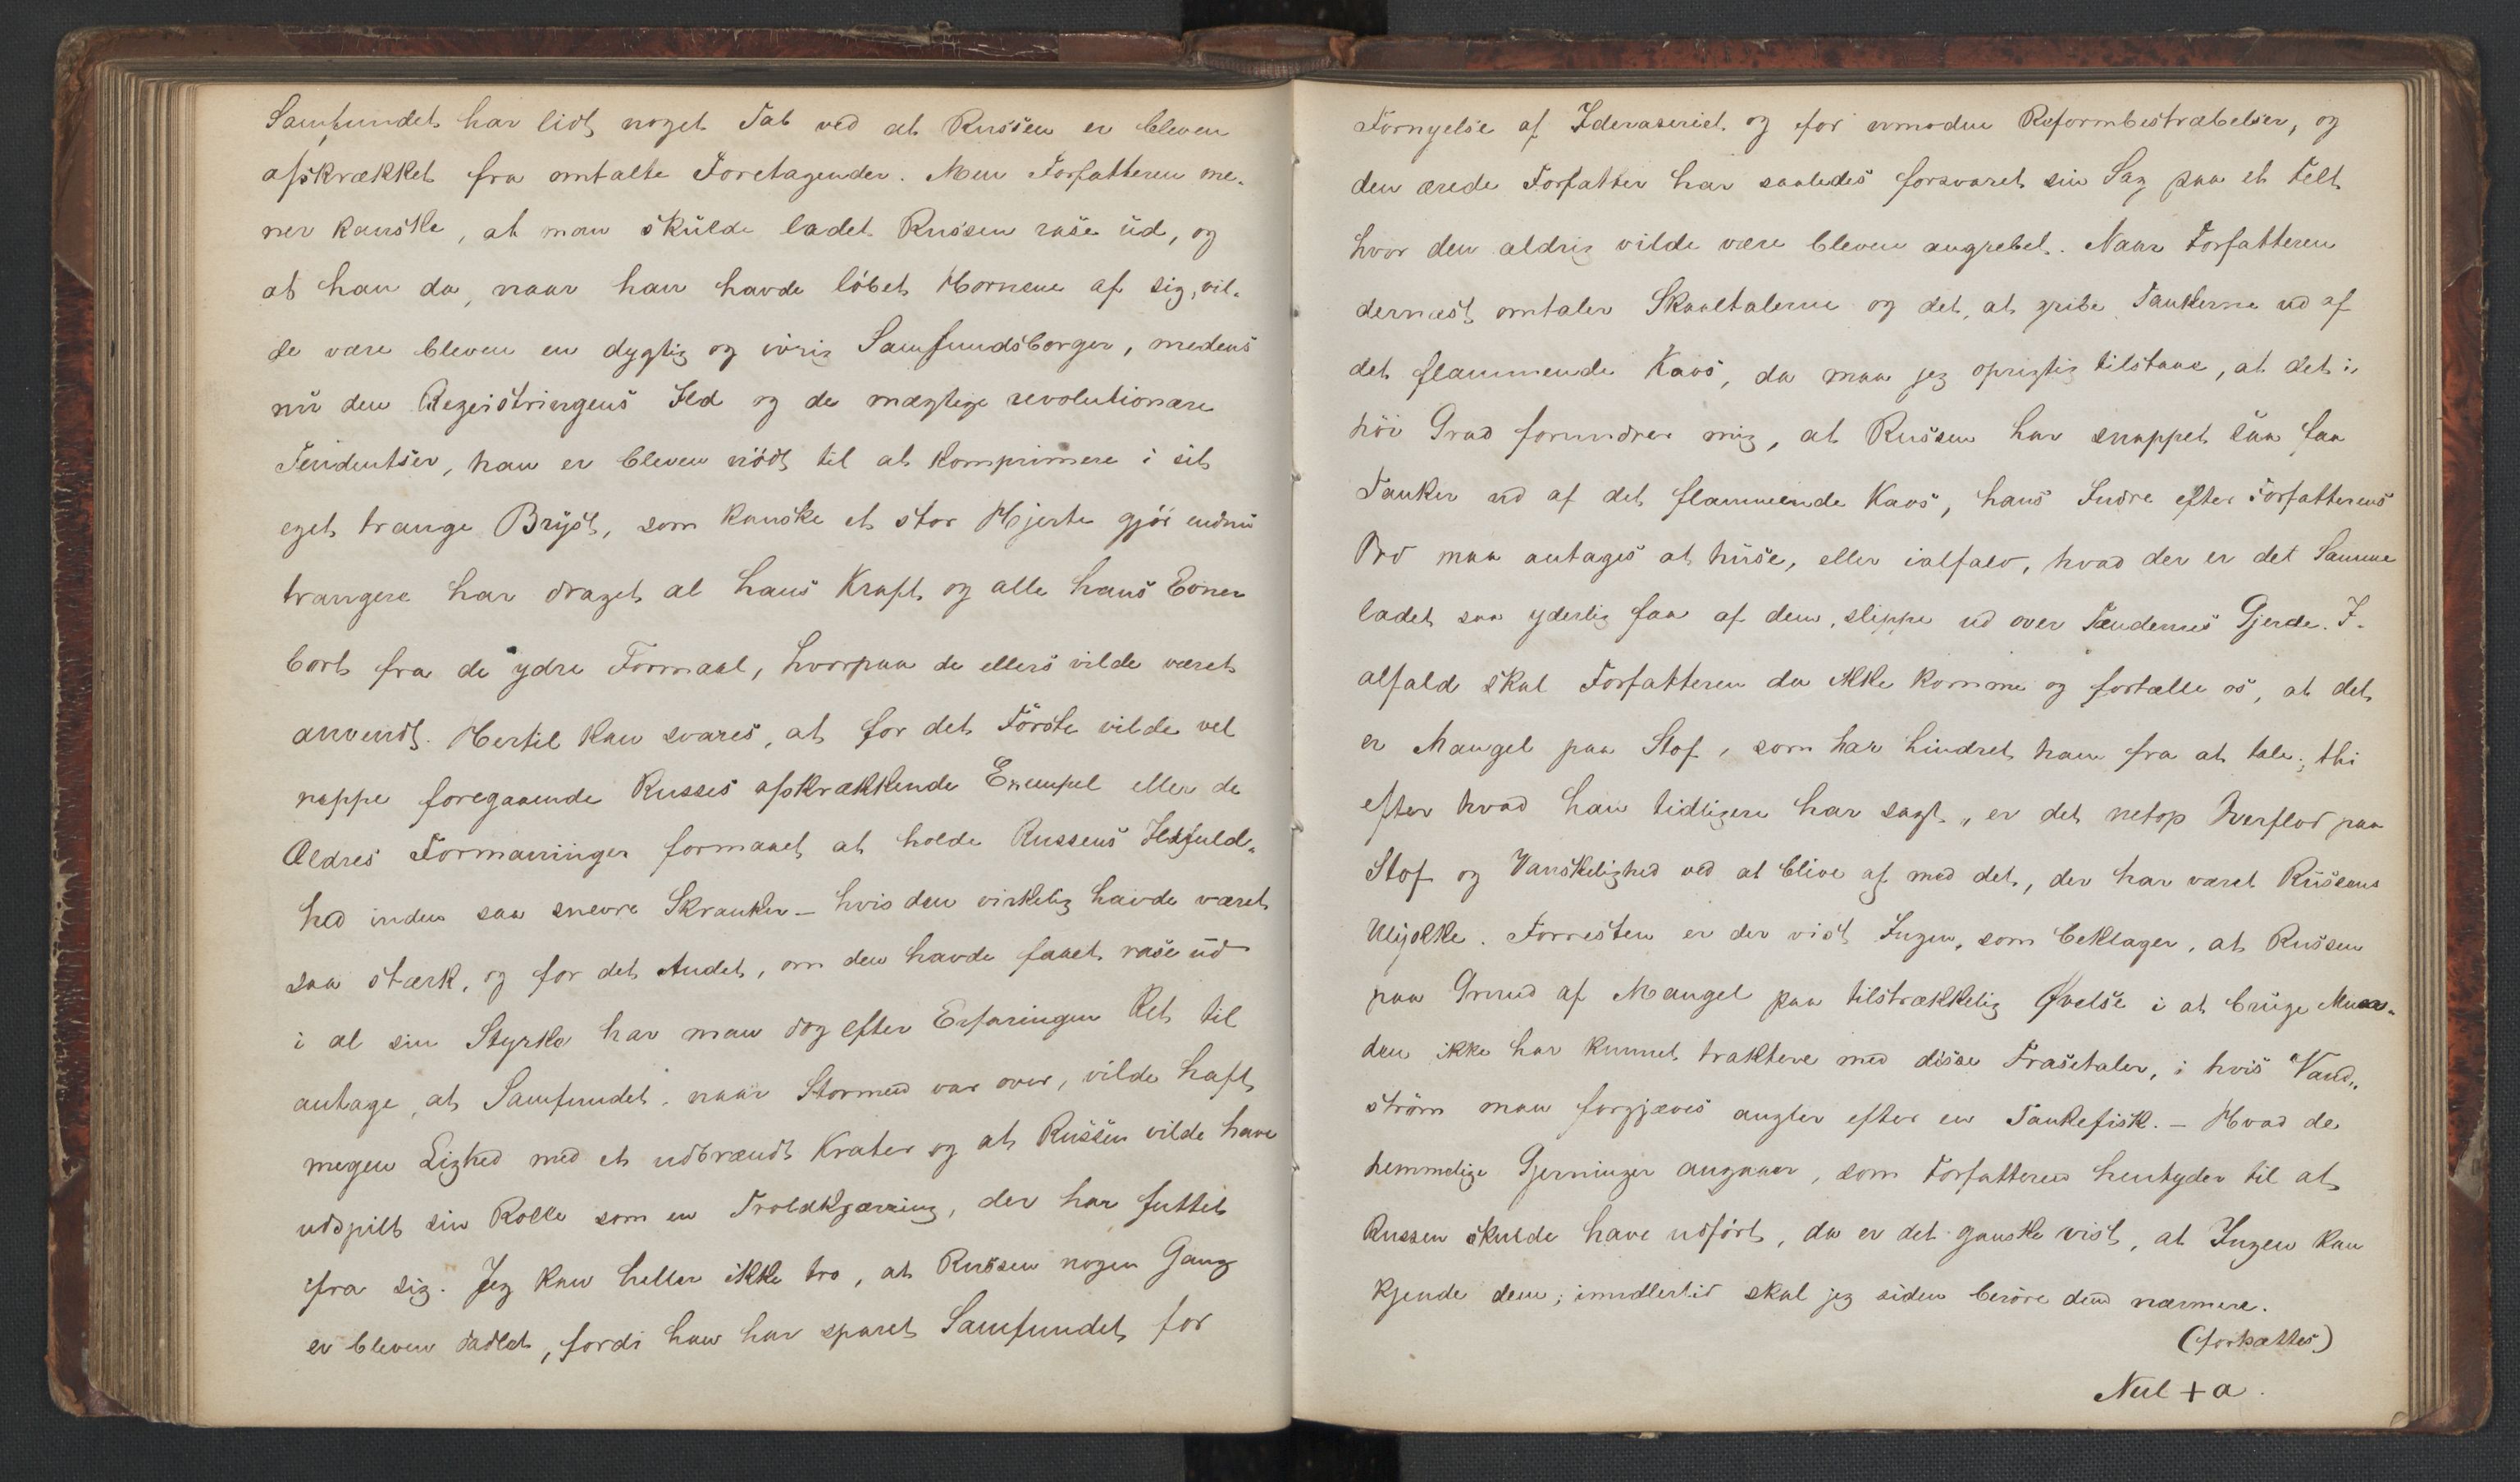 Samfundet har lidt noget Tab ved at Russen er bleven
afskrækket fra omtalte Foretagender. Men Forfatteren me-
ner kanske, at man skulde ladet Russen rase ud, og
at han da, naar han havde løbet Hornene af sig, vil-
de være bleven en dygtig og ivrig Samfundsborger, medens
nu den Begeistringens Ild og de mægtige revolutionære
Tendentser, han er bleven nødt til at komprimere i sit
eget trange Bryst, som kanske et stor Hjerte gjør endnu
trangere har draget al hans Kraft og alle hans Evner
bort fra de ydre Formaal, hvorpaa de ellers vilde været
anvendt. Hertil kan svares, at for det Første vilde vel
neppe foregaaende Russes afskrækkende Exempel eller de
Ældres Formaninger formaaet at holde Russens Ildfuld-
hed inden saa snevre Skranker – hvis den virkelig havde været
saa stærk, og for det Andet, om den havde faaet rase ud
i al sin Styrke har man dog efter Erfaringen Ret til
antage, at Samfundet, naar Stormen var over, vilde haft
megen Lighed med et udbrændt Krater og at Russen vilde have
udspilt sin Rolle som en Troldkjærring, der har futtet
fra sig. Jeg kan heller ikke tro, at Russen nogen Gang
er bleven dadlet, fordi han har sparet Samfundet for
Fornyelse af Ideraseriet og for umodne Reformbestræbelser, og
den ærede Forfatter har saaledes forsvaret sin Sag paa et Felt
hvor den aldrig vilde være bleven angrebet. Naar Forfatteren
dernæst omtaler Skaaltalerne og det, at gribe Tankerne ud af
det flammende Kaos, da maa jeg oprigtig tilstaae, at det i
høi Grad forundrer mig, at Russen har snappet saa faa
Tanker ud af det flammende Kaos, hans Indre efter Forfatterens
Ord maa antages at huse, eller ialfald, hvad der er det Samme
ladet saa yderlig faa af dem, slippe ud over Tændernes Gjerde. I-
alfald skal Forfatteren da ikke komme og fortælle os, at det
er Mangel paa Stof, som har hindret ham fra at tale; thi
efter hvad han tidligere har sagt, er det netop Overflod paa
Stof og Vanskelighed ved at blive af med det, der har været Russens
Ulykke. Forresten er der vist Ingen, som beklager, at Russen
paa Grund af Mangel paa tilstrækkelig Øvelse i at bruge Mun-
den ikke har kunnet traktere med disse Frasetaler, i hvis Vand-
strøm man forgjæves angler efter en Tankefisk. – Hvad de
hemmelige Gjerninger angaaer, som Forfatteren hentyder til at
Russen skulde have udført, da er det ganske vist, at Ingen kan
kjende dem; imidlertid skal jeg siden berøre dem nærmere.
(fortsættes)
Nul + a.